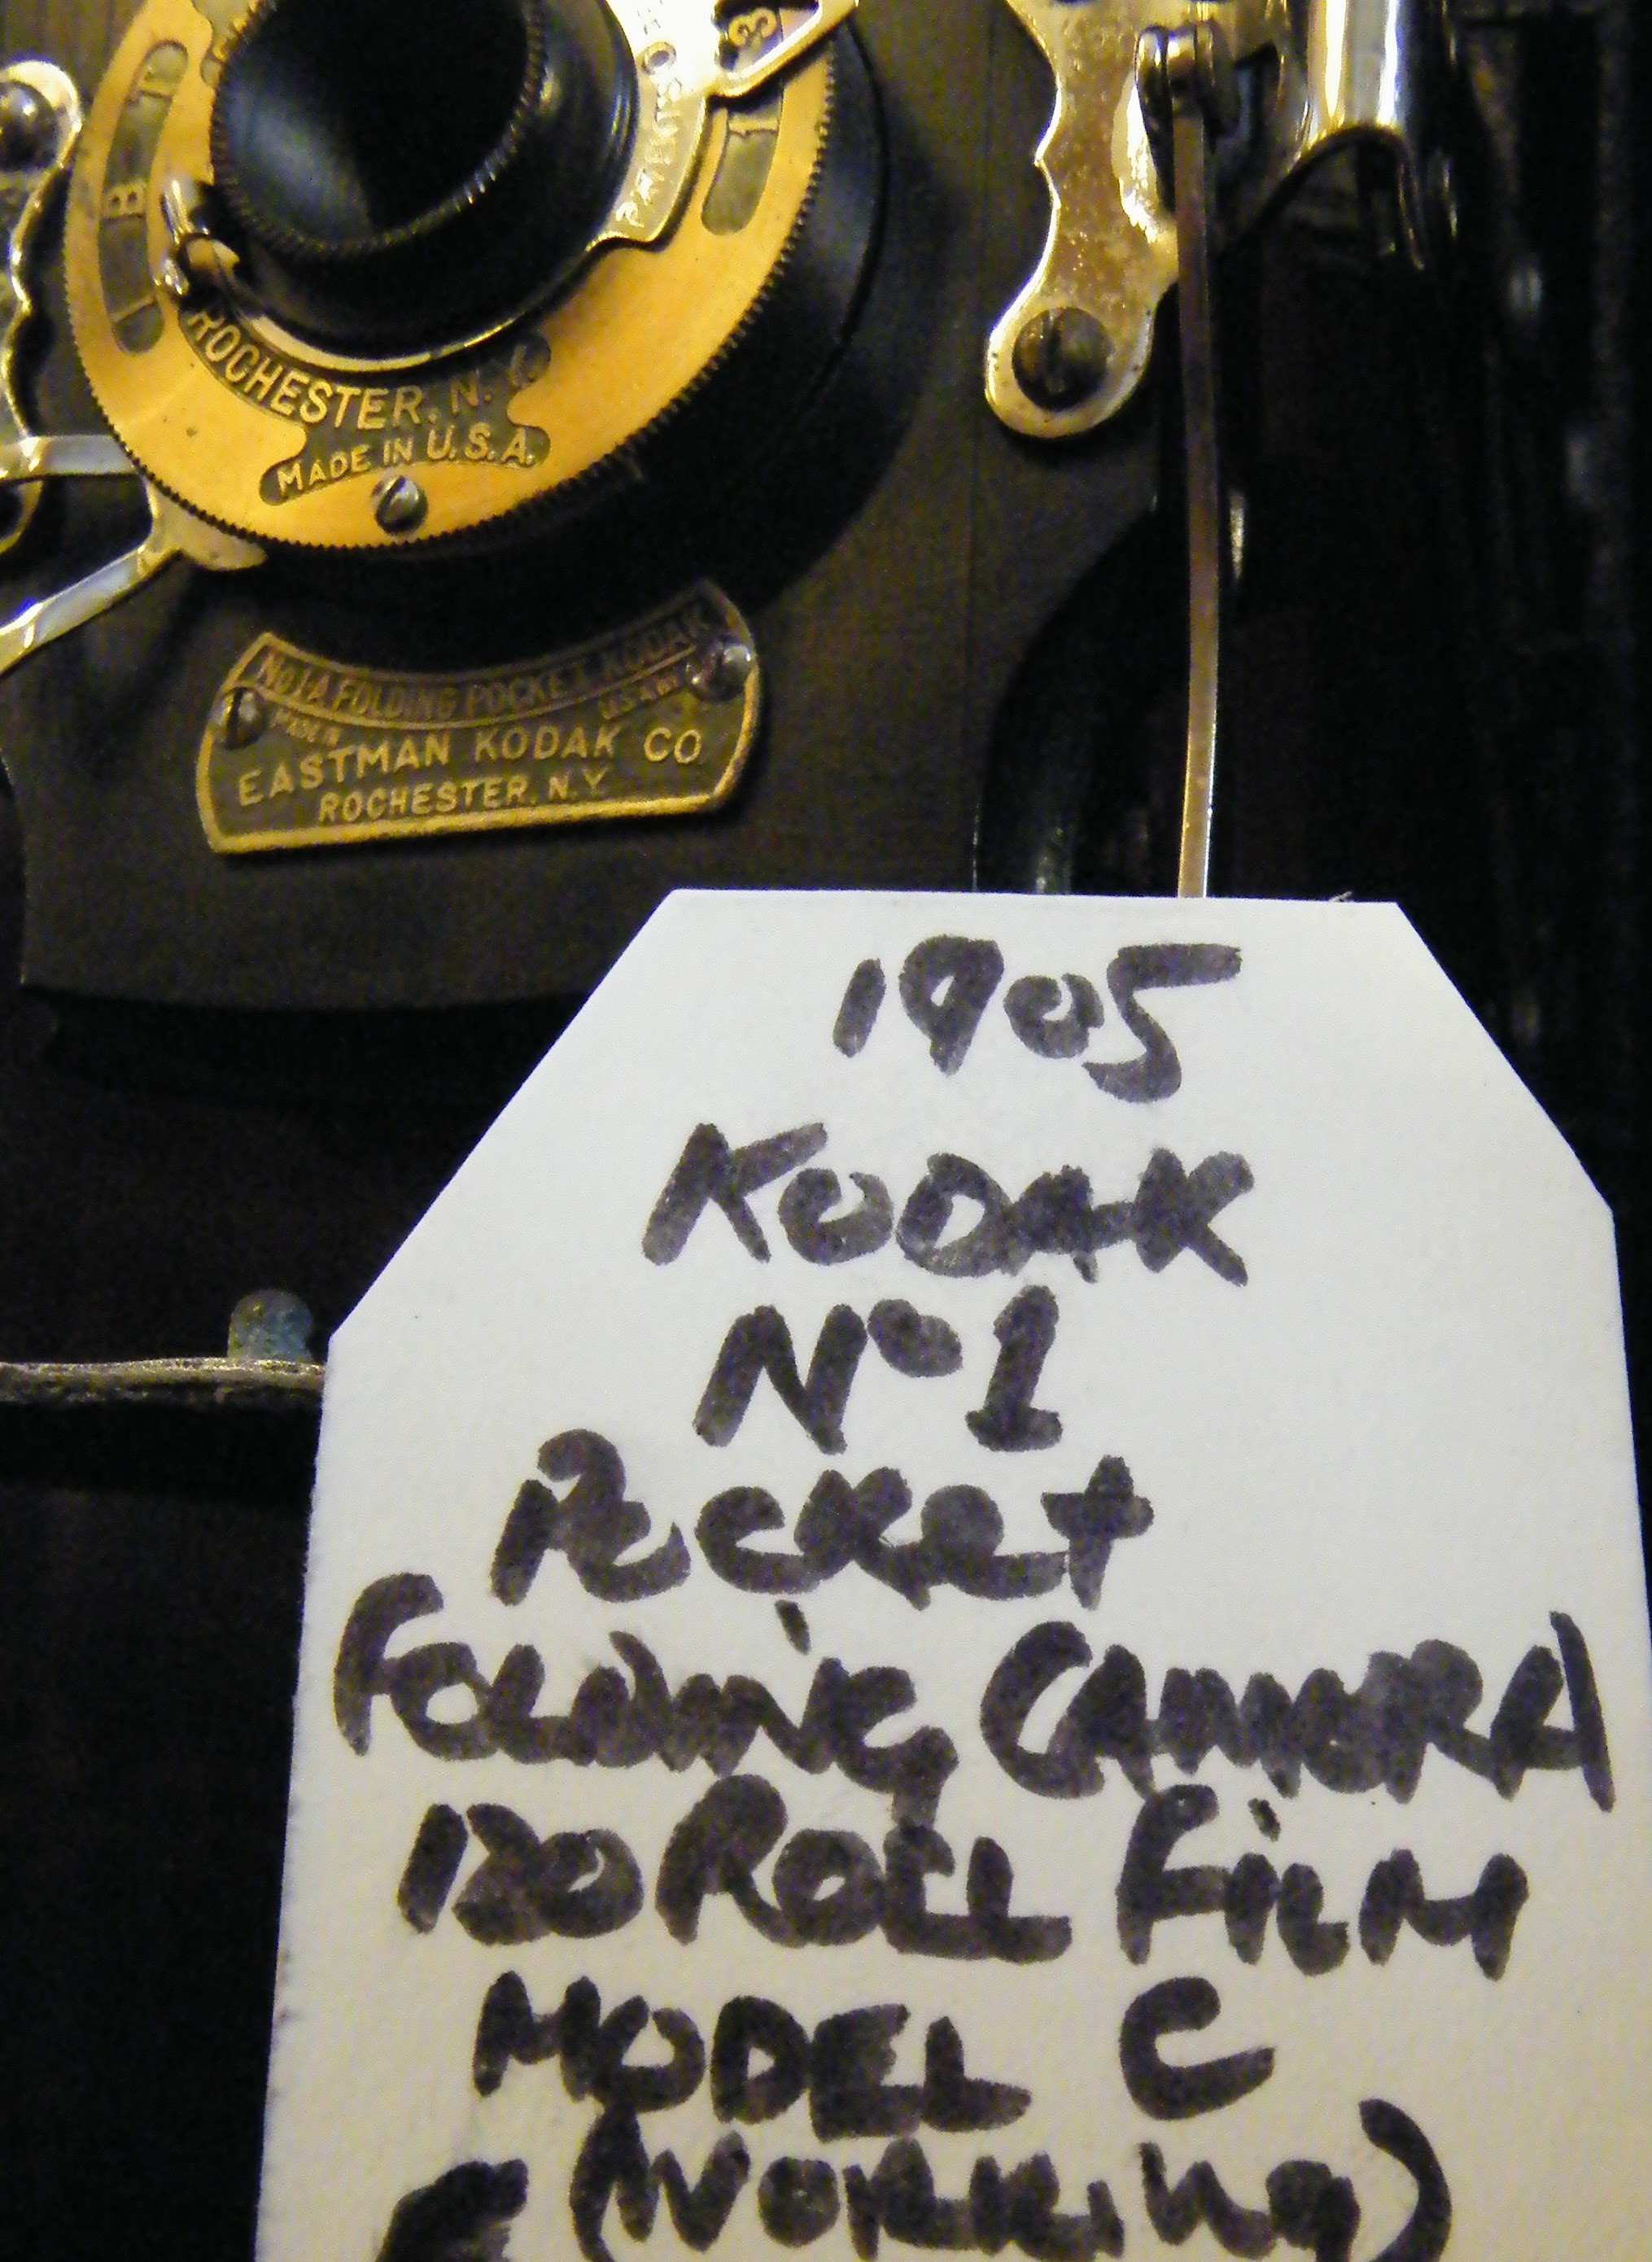 3
1
D
B
I
ROCHESTER, N.Y.
MADE IN U.S.A.
No 1A FOLDING POCKET KODAK
EASTMAN KODAK CO.
ROCHESTER, N.Y.
1905
KODAK
No 1
Pocket
FOLDING CAMMERA
120 ROLL FILM
MODEL C
(WORKING)